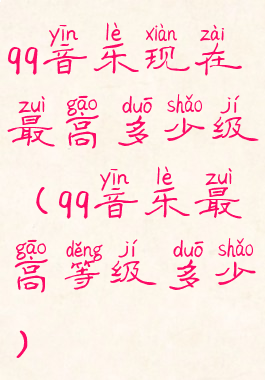 yīn lè xiàn zài
qq音乐现在
zuì gāo duō shǎo jí
最高多少级
yīn lè zuì
(qq音乐最
gāo děng jí duō shǎo
高等级多少
)